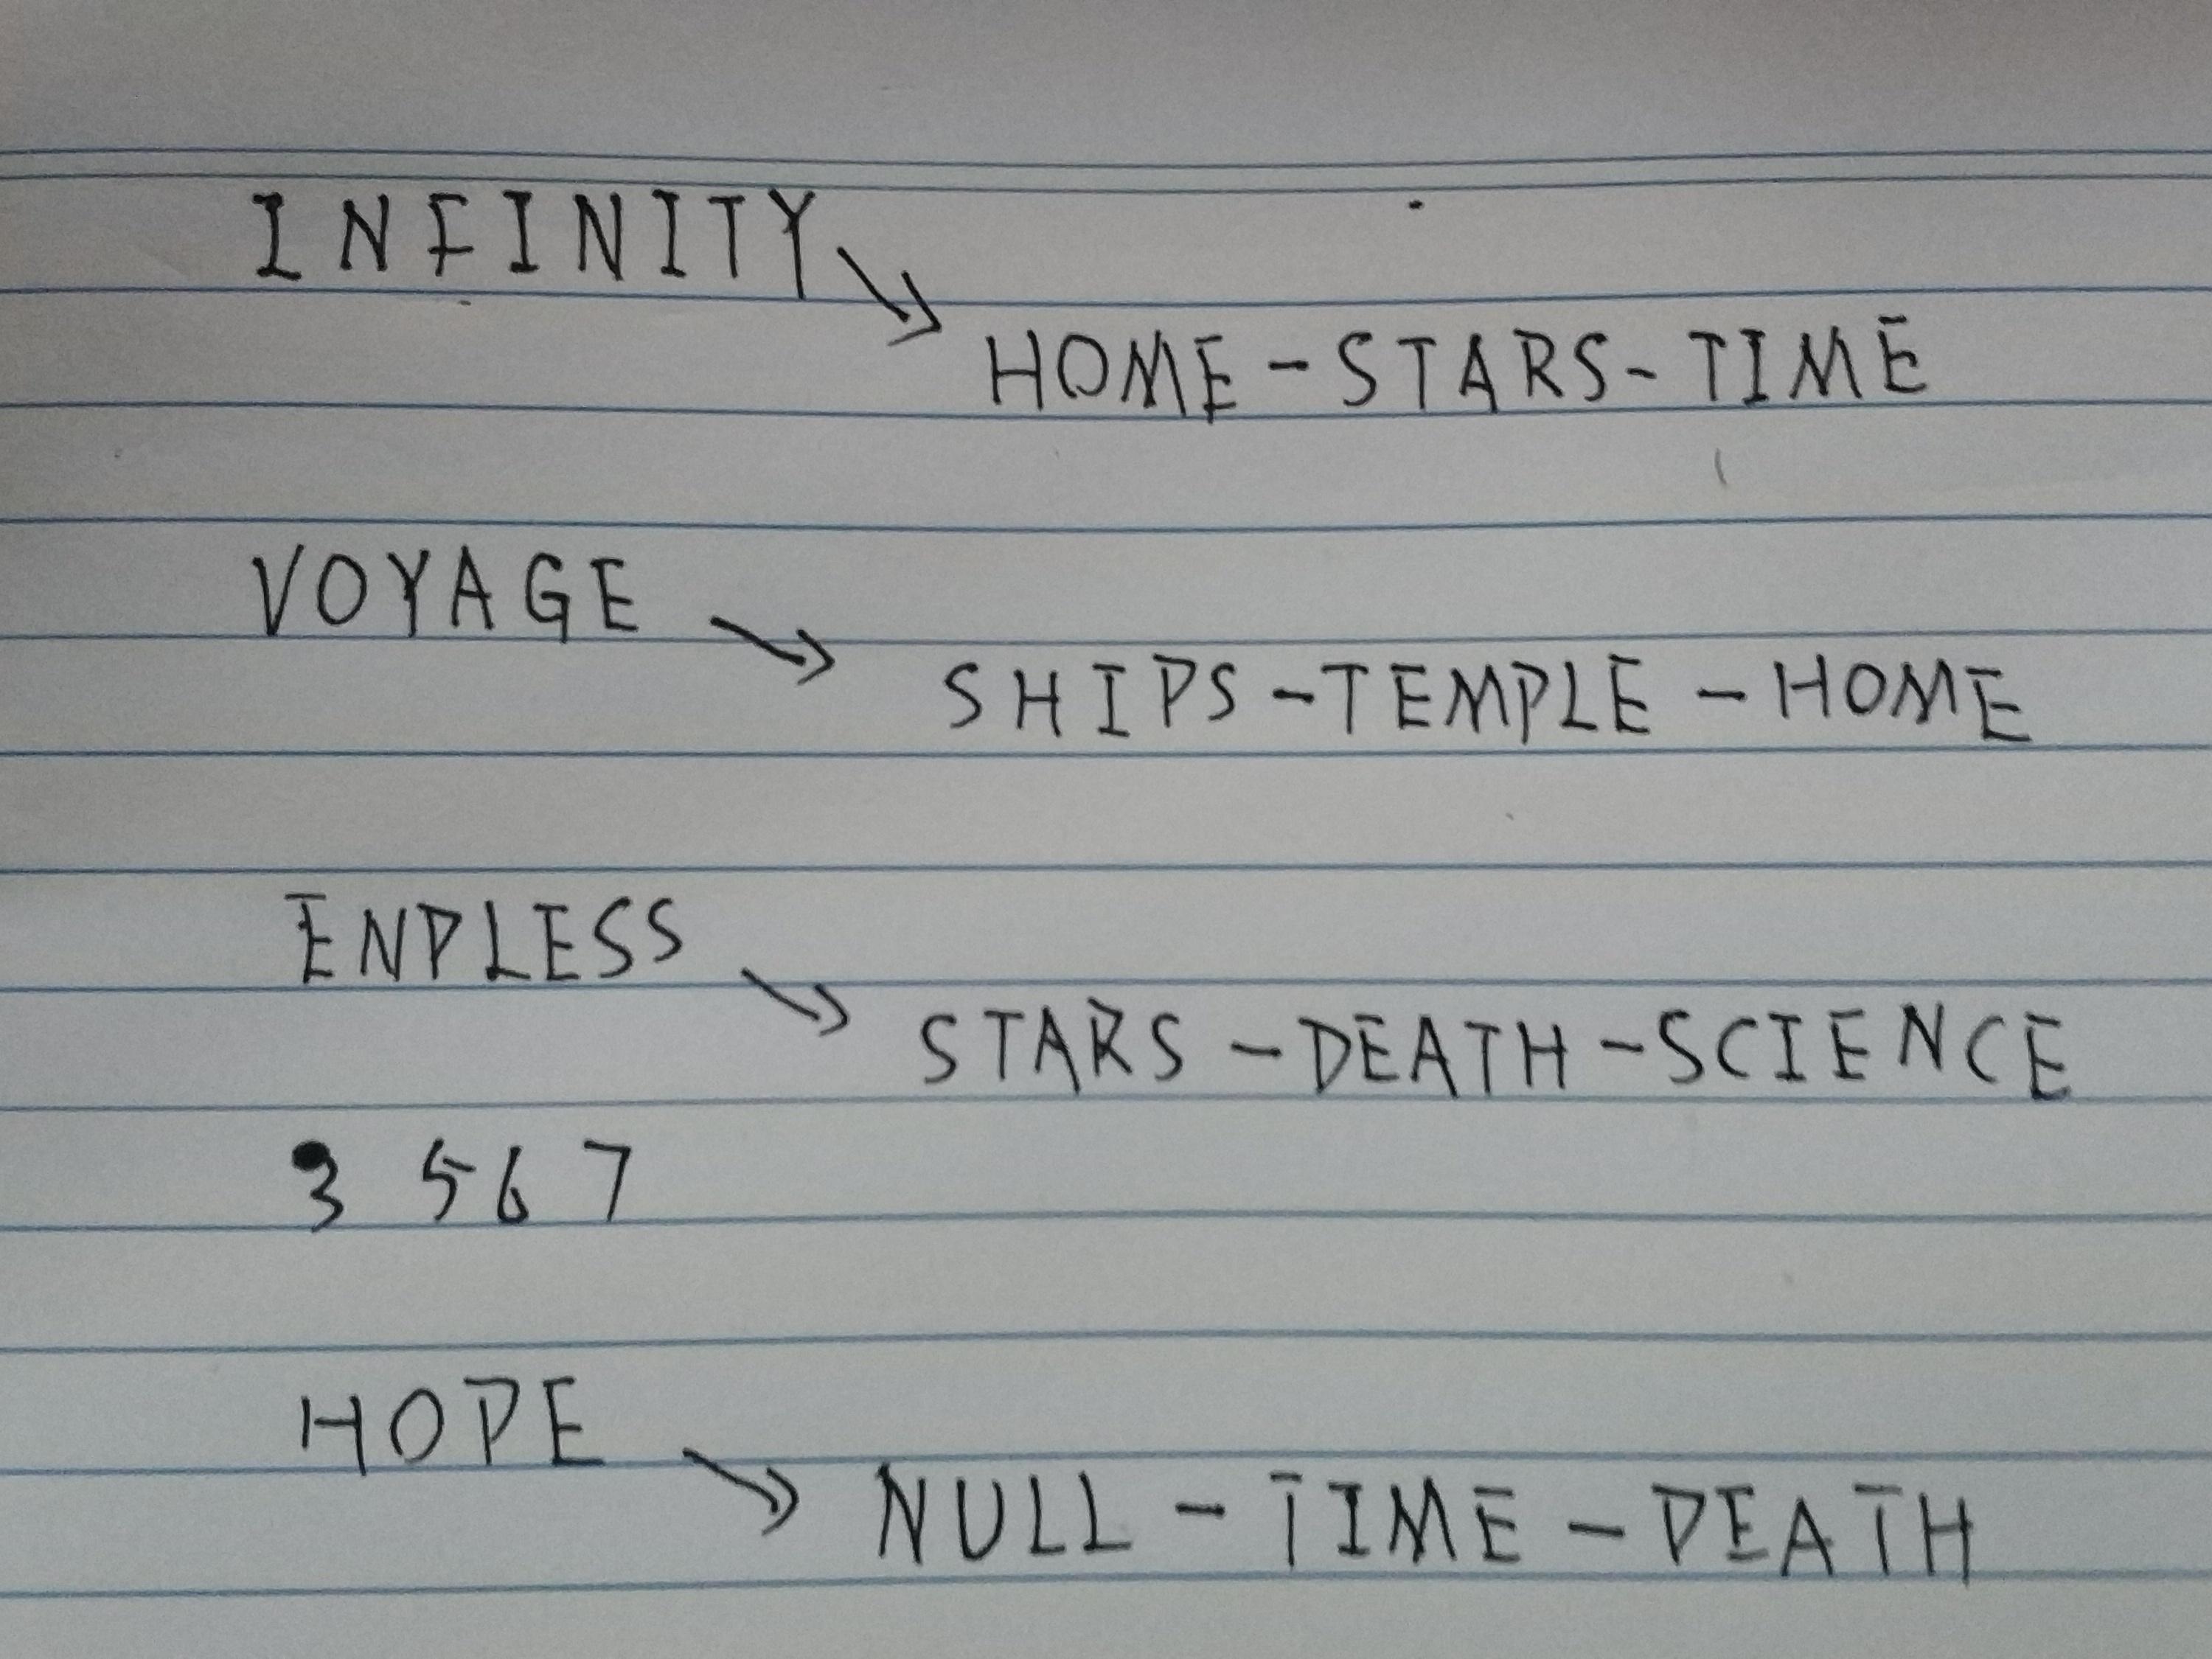 INFINITY
HOME-STARS-TIME
VOYAGE
SHIPS-TEMPLE-HOME
ENDLESS
STARS-DEATH-SCIENCE
3 567
HOPE
NULL-TIME-DEATH